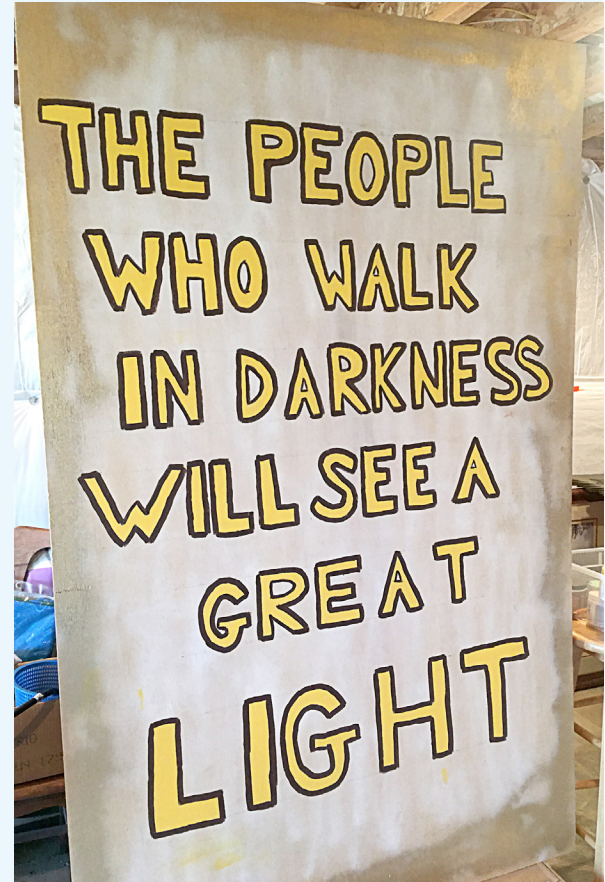 THE PEOPLE
WHO WALK
IN DARKNESS
WILL SEE A
GREAT
LIGHT